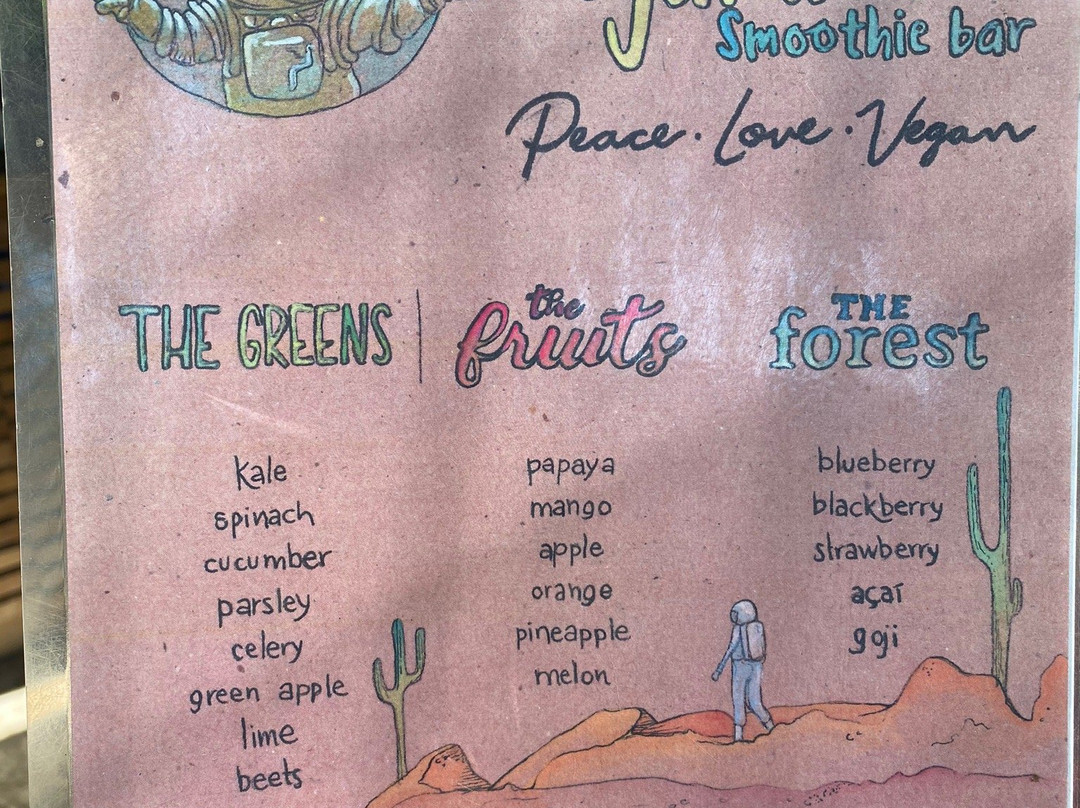 Smoothie bar
Peace · Love · Vegan
THE GREENS
the
fruits
THE
forest
kale
spinach
cucumber
parsley
celery
green apple
lime
beets
papaya
mango
apple
orange
pineapple
melon
blueberry
blackberry
strawberry
açaí
goji